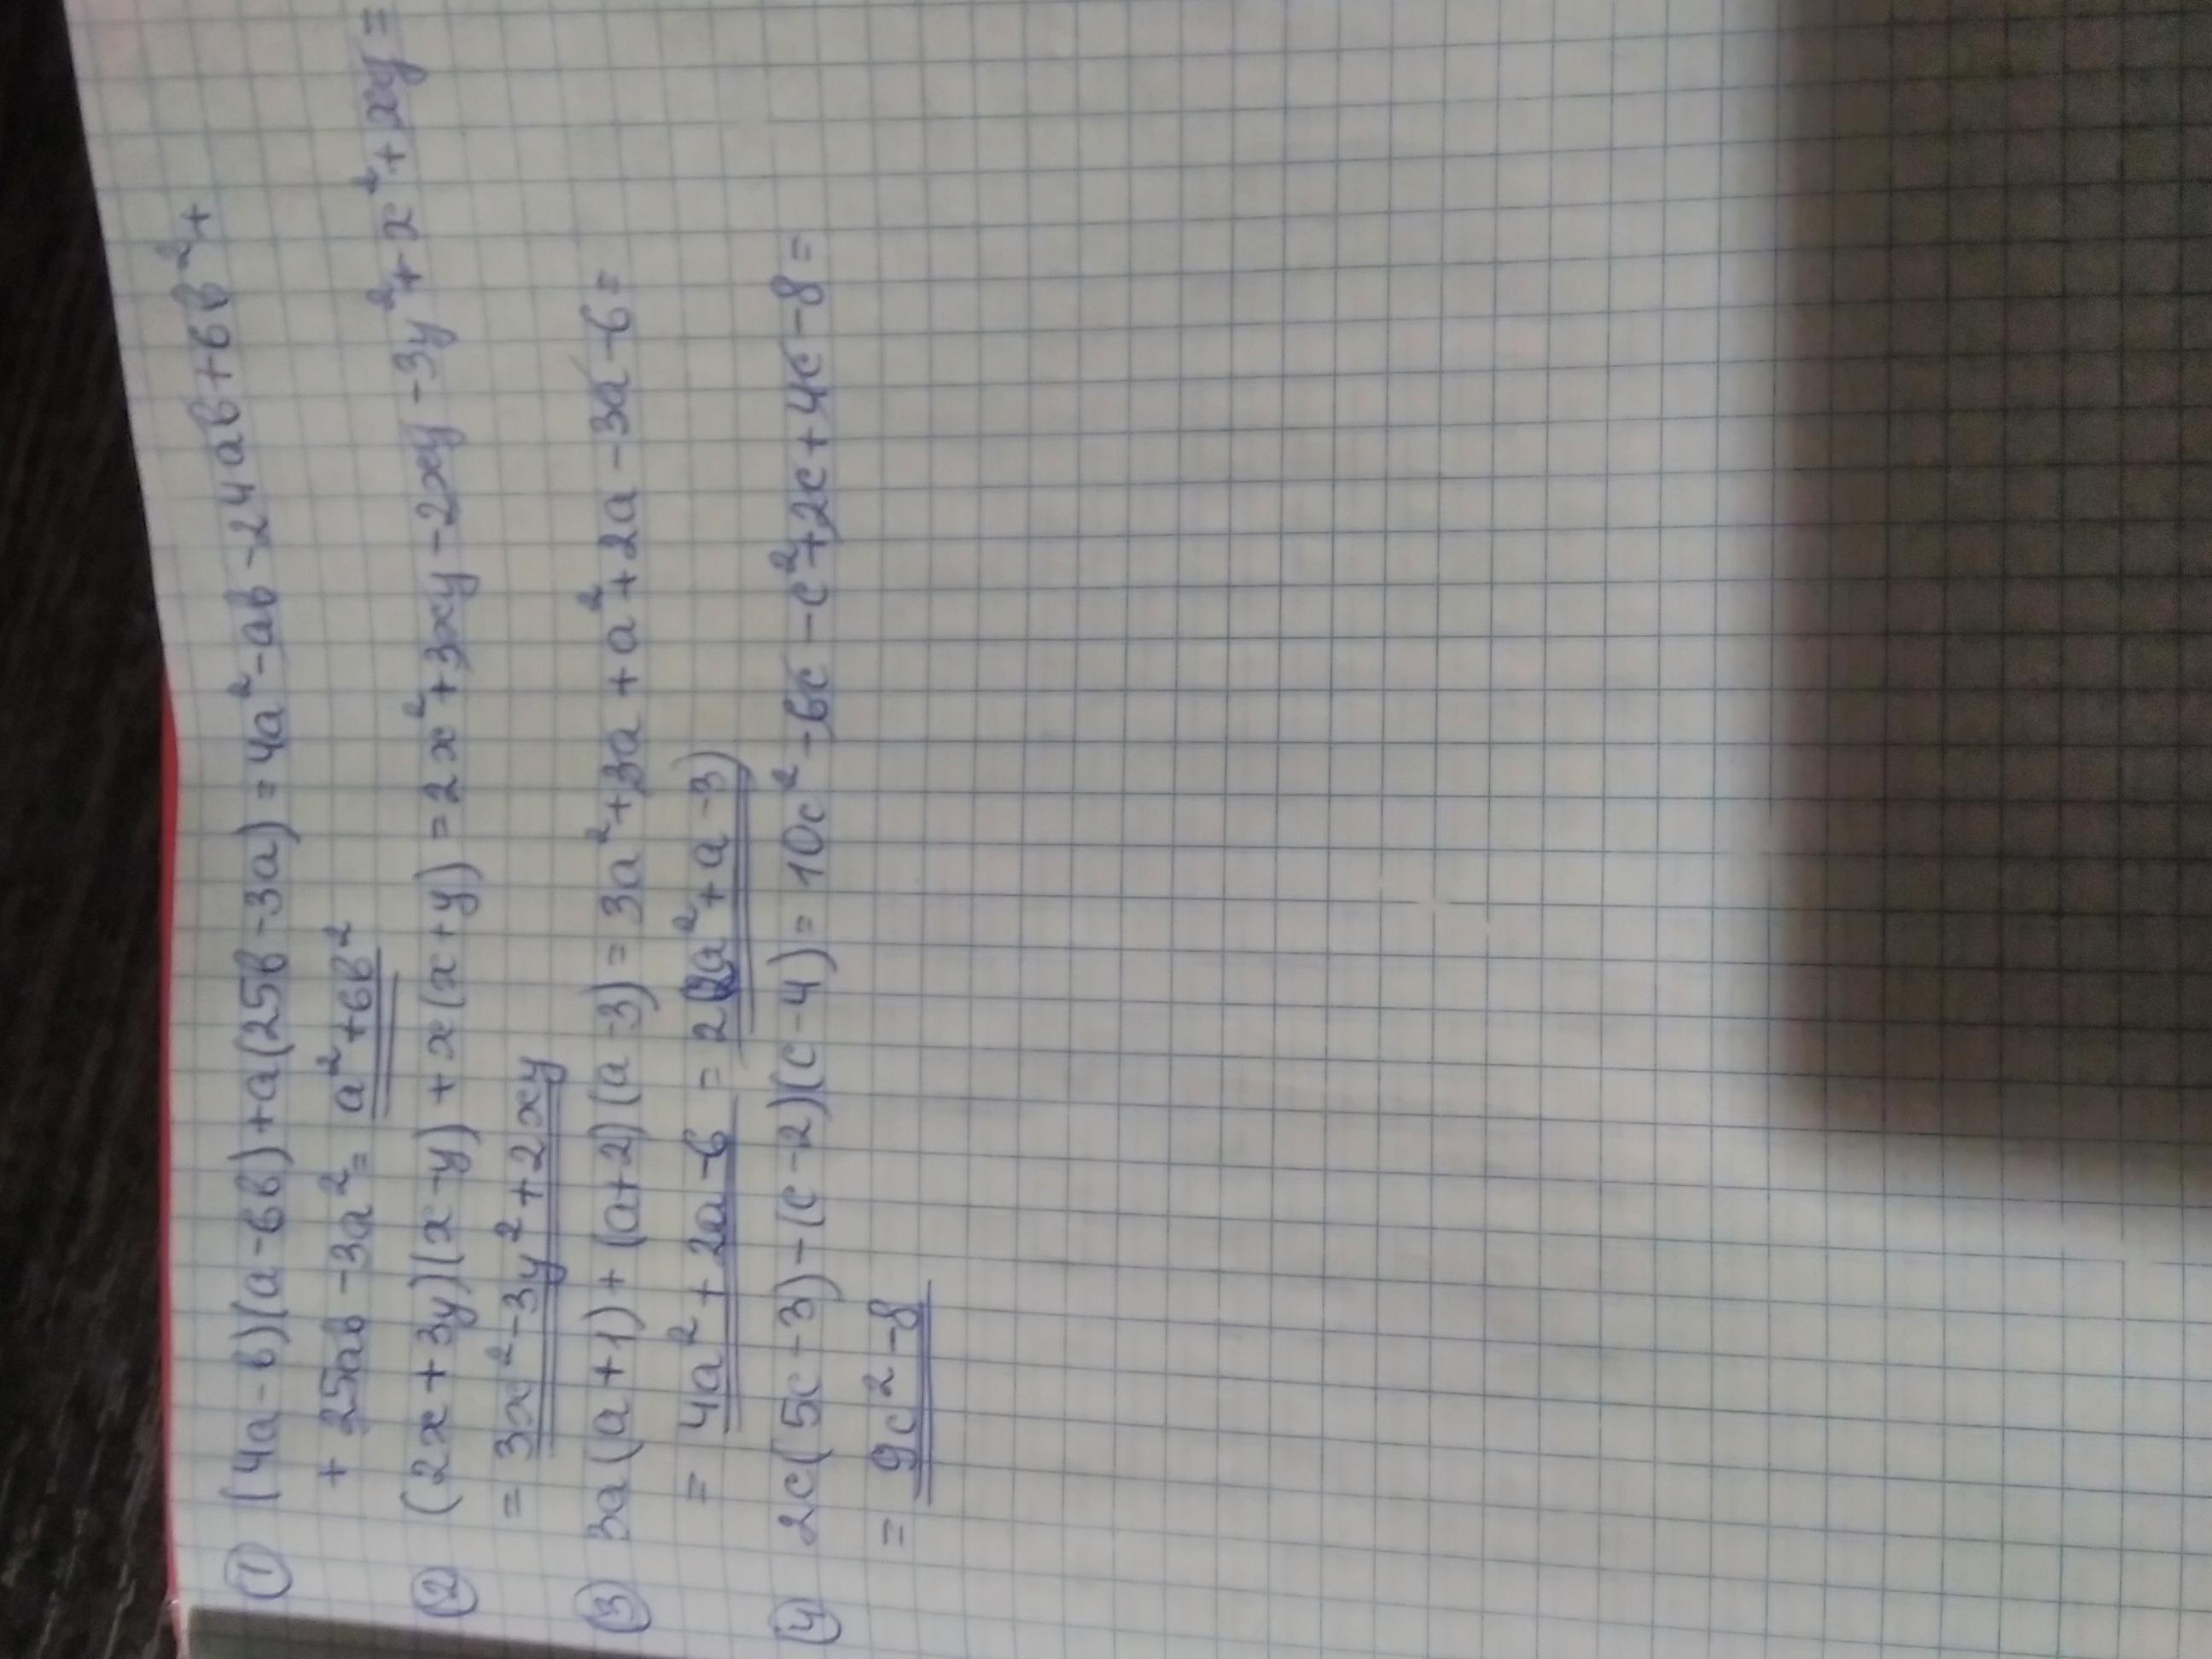 ① (4a-в)(a-6в)+a(25в-3a)=4a²-aв-24aв+6в²+
+25aв-3a²=a²+6в²
② (2x+3y)(x-y)+x(x+y)=2x²+3xy-2xy-3y²+x²+xy=
=3x²-3y²+2xy
③ 3a(a+1)+(a+2)(a-3)=3a²+3a+a²+2a-3a-6=
=4a²+2a-6=2(2a²+a-3)
④ 2c(5c-3)-(c-2)(c-4)=10c²-6c-c²+2c+4c-8=
=9c²-8